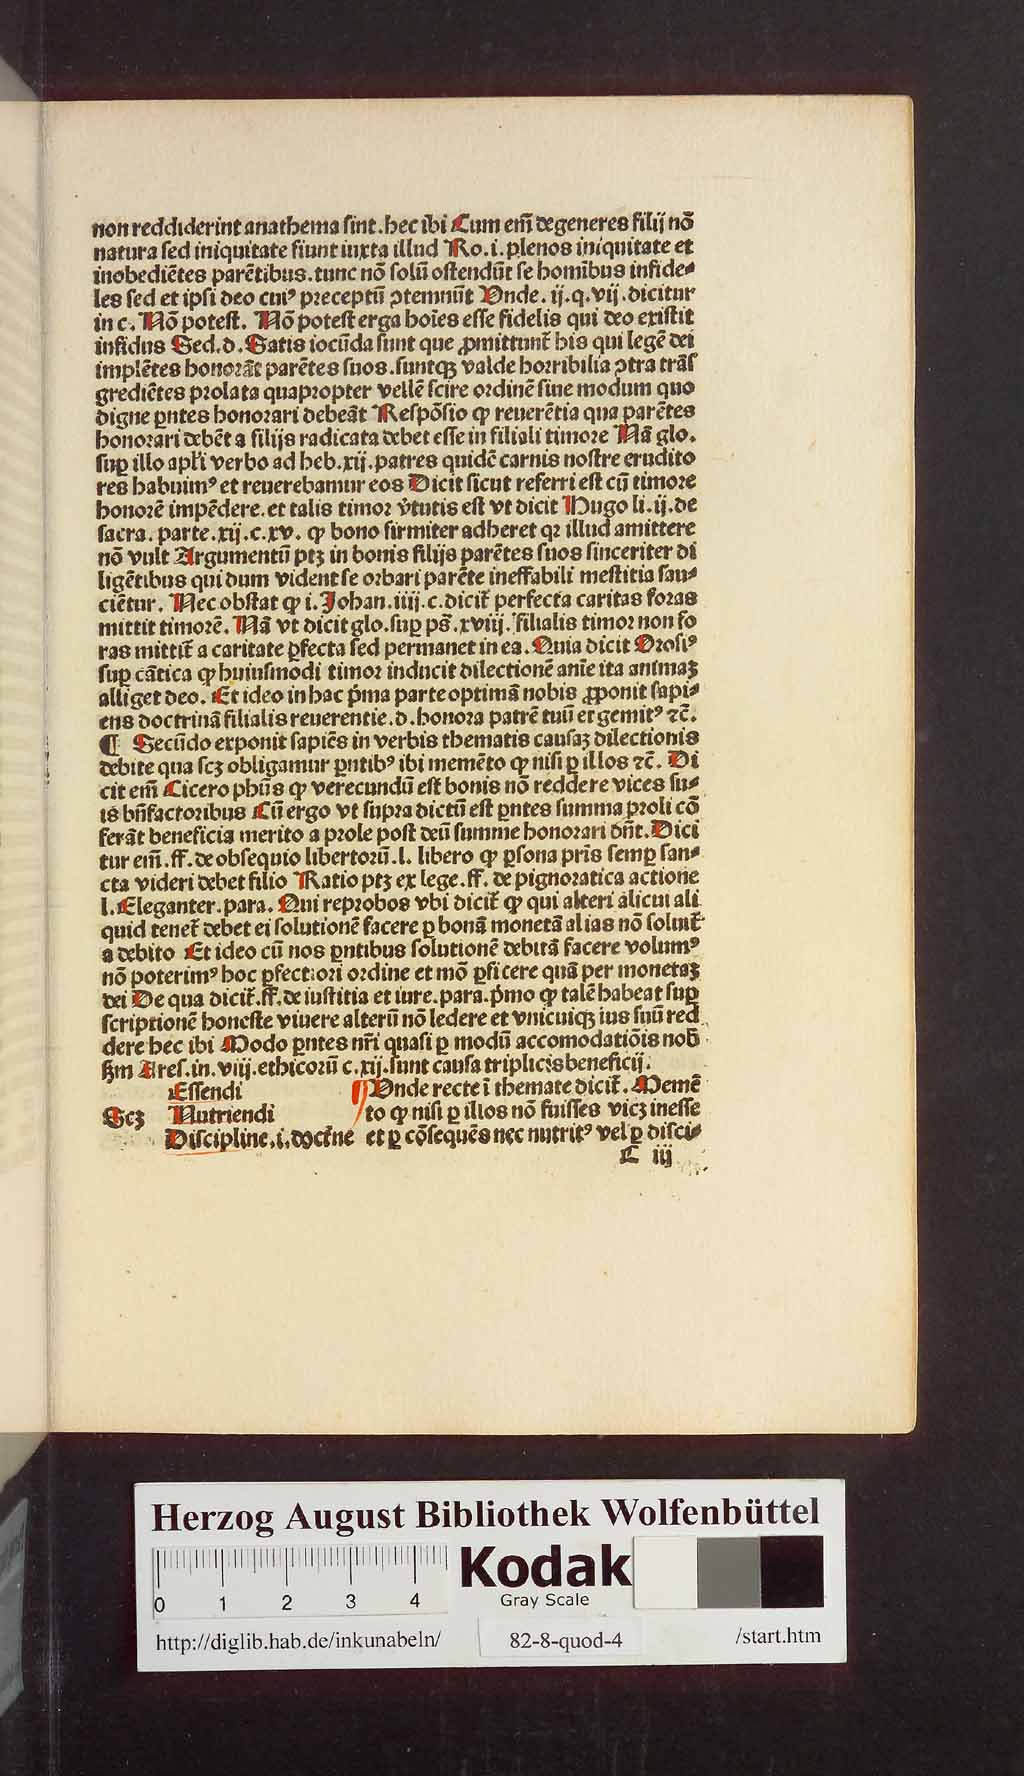 non reddiderint anathema sint. hec ibi Cum em̄ degeneres filij nō
natura sed iniquitate fiunt iuxta illud Ro. i. plenos iniquitate et
inobediētes parētibus. tunc nō solū ostendūt se homībus infide-
les sed et ipsi deo cuiꝰ preceptū ꝯtemnūt Vnde. ij. q. vij. dicitur
in c. Nō potest. Nō potest erga hoīes esse fidelis qui deo existit
infidus Sed. d. Satis iocūda sunt que ꝓmittunt̄ his qui legē dei
implētes honorāt parētes suos. suntqꝫ valde horribilia ꝯtra trās
grediētes prolata quapropter vellē scire ordinē siue modum quo
digne pn̄tes honorari debeāt Respōsio ꝙ reuerētia qua parētes
honorari debēt a filijs radicata debet esse in filiali timore Nā glo.
sup̄ illo apl'i verbo ad heb. xij. patres quidē carnis nostre erudito
res habuimꝰ et reuerebamur eos Dicit sicut referri est cū timore
honorē impēdere. et talis timor v̓tutis est vt dicit Hugo li. ij. de
sacra. parte. xij. c. xv. ꝙ bono firmiter adheret qꝛ illud amittere
nō vult Argumentū ptꝫ in bonis filijs parētes suos sinceriter di
ligētibus qui dum vident se orbari parēte ineffabili mestitia sau-
ciētur. Nec obstat ꝙ i. Johan. iiij. c. dicit̄ perfecta caritas foras
mittit timorē. Nā vt dicit glo. sup̄ ps̄. xviij. filialis timor non fo
ras mittit̄ a caritate ꝑfecta sed permanet in ea. Quia dicit Orosiꝰ
sup̄ cātica ꝙ huiusmodi timor inducit dilectionē anīe ita animaꝫ
alliget deo. Et ideo in hac p̄ma parte optimā nobis ꝓponit sapi-
ens doctrinā filialis reuerentie. d. honora patrē tuū et gemitꝰ ⁊c̄.
¶ Secūdo exponit sapiēs in verbis thematis causaꝫ dilectionis
debite qua scꝫ obligamur pn̄tibꝰ ibi memēto ꝙ nisi ꝑ illos ⁊c̄. Di
cit em̄ Cicero phūs ꝙ verecundū est bonis nō reddere vices su-
is bn̄factoribus Cū ergo vt supra dictū est pn̄tes summa proli cō
ferāt beneficia merito a prole post deū summe honorari dn̄t. Dici
tur em̄. ff. de obsequio libertorū. l. libero ꝙ ꝑsona pr̄is semꝑ san-
cta videri debet filio Ratio ptꝫ ex lege. ff. de pignoratica actione
l. Eleganter. para. Qui reprobos vbi dicit̄ ꝙ qui alteri alicui ali
quid tenet̄ debet ei solutionē facere ꝑ bonā monetā alias nō soluit̄
a debito Et ideo cū nos pn̄tibus solutionē debitā facere volumꝰ
nō poterimꝰ hoc ꝑfectiori ordine et mō ꝑficere quā per monetaꝫ
dei De qua dicit̄. ff. de iustitia et iure. para. p̄mo ꝙ talē habeat sup̄
scriptionē honeste viuere alterū nō ledere et vnicuiqꝫ ius suū red
dere hec ibi Modo pn̄tes nr̄i quasi ꝑ modū accomodatiōis nob̄
ẜm Ares. in. viij. ethicorū c. xij. sunt causa triplicis beneficij.
Essendi
Scꝫ Nutriendi
Discipline. i. doctrīne
¶ Vnde recte ī themate dicit̄. Memē
to ꝙ nisi ꝑ illos nō fuisses vicꝫ inesse
et ꝑ cōsequēs nec nutritꝰ vel ꝑ disci-
C iij
Herzog August Bibliothek Wolfenbüttel
0 1 2 3 4
Kodak
Gray Scale
http://diglib.hab.de/inkunabeln/
82-8-quod-4
/start.htm